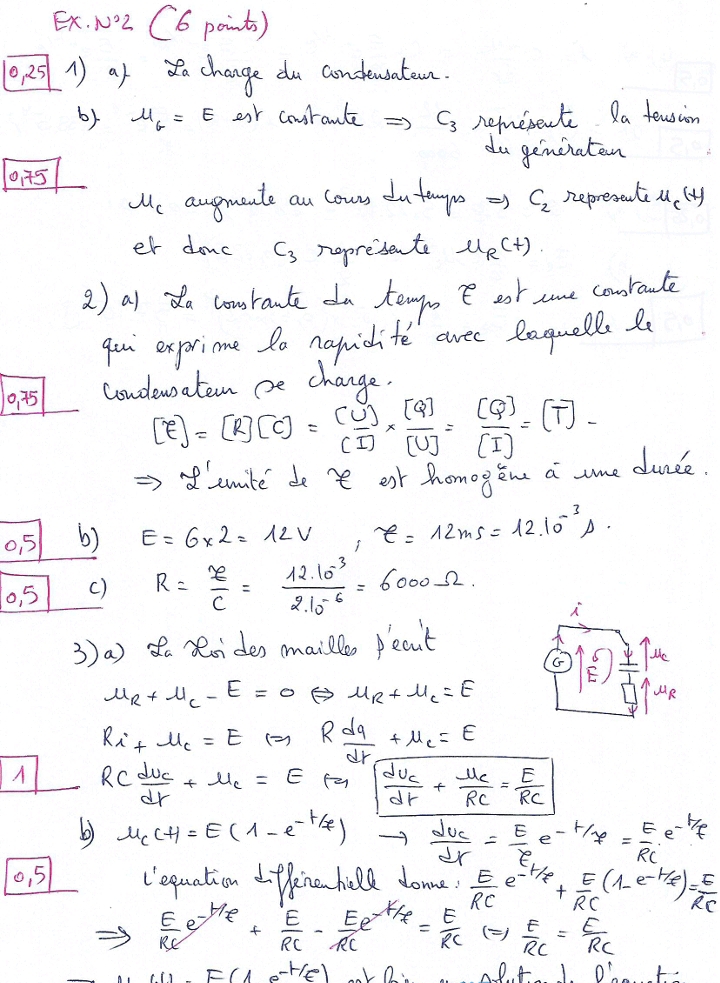 EX. N°2 (6 points)
0,25 1) a) La charge du condensateur.
b) u_G = E est constante => C_3 représente la tension
du générateur
0,75
u_c augmente au cours du temps => C_2 represente u_c(t)
et donc C_3 représente u_R(t).
2) a) La constante du temps τ est une constante
qui exprime la rapidité avec laquelle le
condensateur se charge.
0,75
[τ] = [R][C] = [U]/[I] × [Q]/[U] = [Q]/[I] = [T] -
=> L'unité de τ est homogène à une durée.
0,5 b) E = 6×2 = 12V , τ = 12ms = 12.10^-3 s.
0,5 c) R = τ/C = 12.10^-3/2.10^-6 = 6000 Ω.
3) a) La Loi des mailles s'écrit
u_R + u_c - E = 0 <=> u_R + u_c = E
Ri + u_c = E <=> R dq/dt + u_c = E
1 RC du_c/dt + u_c = E <=> du_c/dt + u_c/RC = E/RC
i
G
E
u_c
u_R
b) u_c(t) = E(1 - e^-t/τ) → du_c/dt = E/τ e^-t/τ = E/RC e^-t/τ
0,5 l'equation différentielle donne: E/RC e^-t/τ + E/RC (1-e^-t/τ) = E/RC
=> E/RC e^-t/τ + E/RC - E e^-t/τ/RC = E/RC <=> E/RC = E/RC